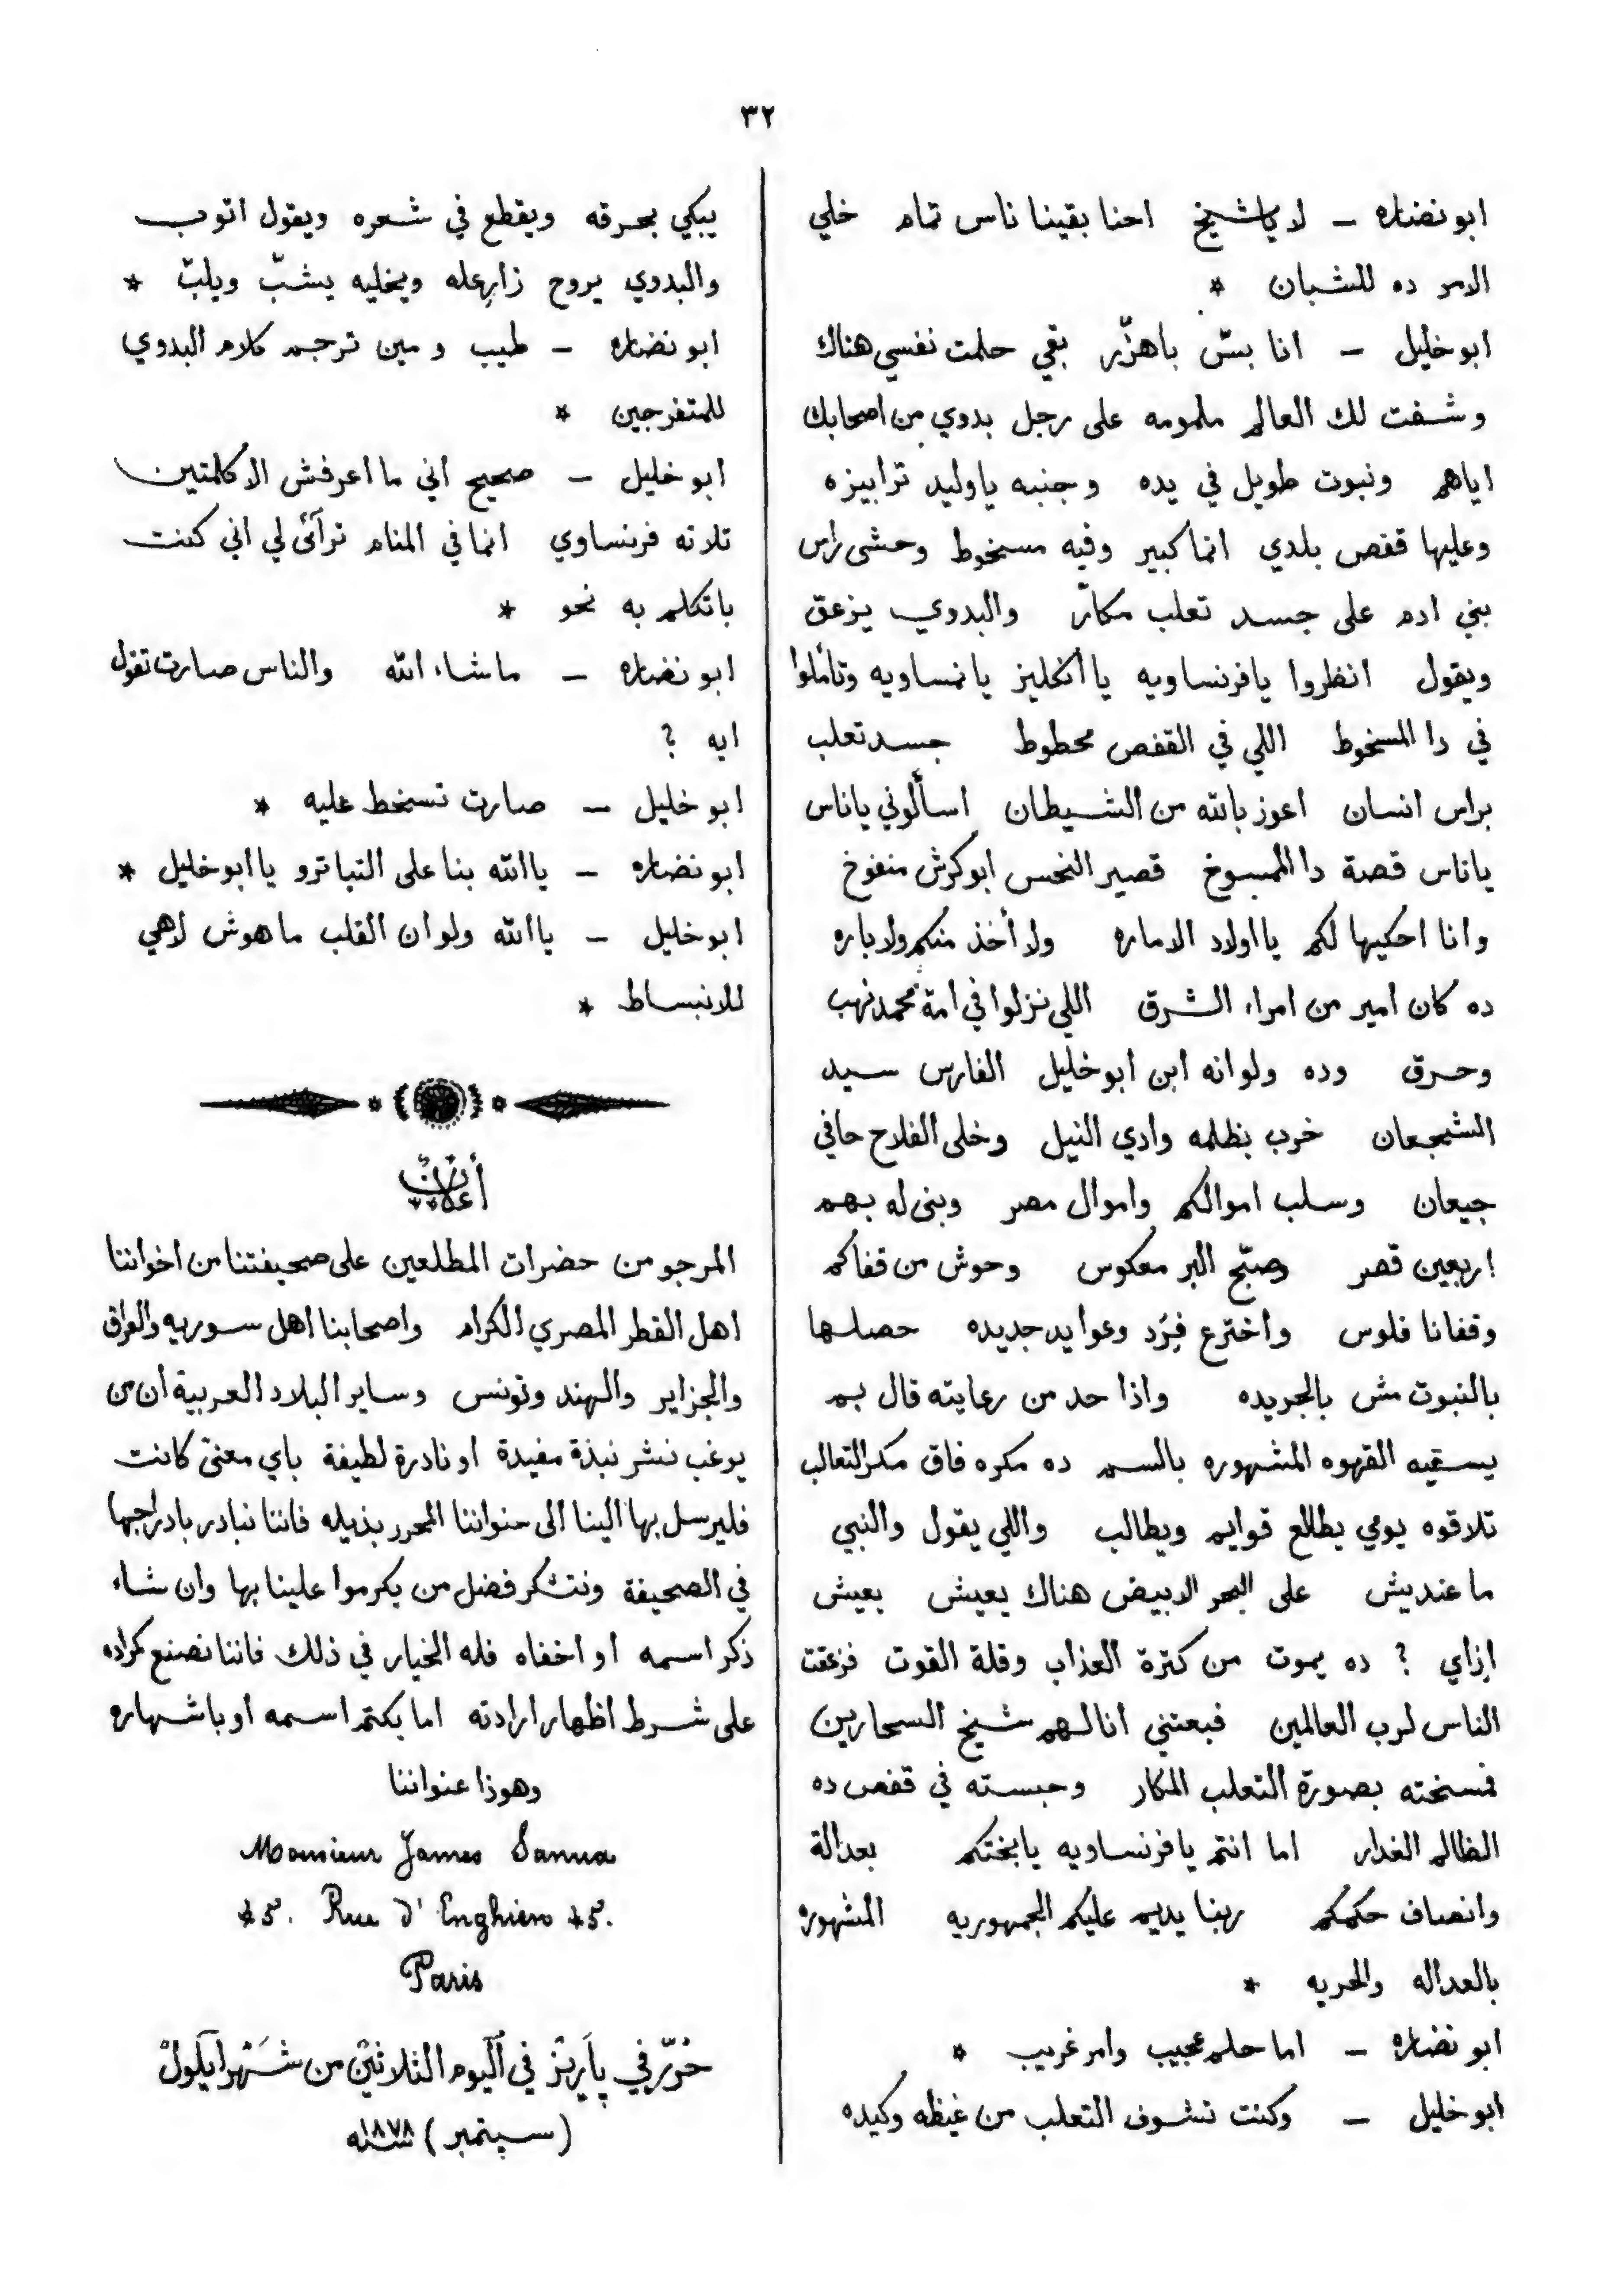 ٣٢
ابو نضاره – لا ياشيخ احنا بقينا ناس تمام خلي
الامر ده للشبان *
ابو خليل – انا بسّ باهزّر بقي حلمت نفسي هناك
وشفت لك العالم ملمومه على رجل بدوي من اصحابك
اياهم ونبوت طويل في يده وجنبه ياوليد ترابيزه
وعليها قفص بلدي انما كبير وفيه مسخوط وحشى راس
بني ادم على جسد تعلب مكار والبدوي يزعق
ويقول انظروا يافرنساويه يا انكليز يانمساويه وتأملوا
في دا المسخوط اللي في القفص محطوط جسد تعلب
براس انسان اعوز بالله من الشيطان اسألوني ياناس
ياناس قصة دا الممسوخ قصير النحس ابو كرش منفوخ
وانا احكيها لكم يا اولاد الاماره ولا أخذ منكم ولا باره
ده كان امير من امراء الشرق اللي نزلوا في امة محمد نهب
وحرق وده ولو انه ابن ابو خليل الفارس سيد
الشجعان خرب بظلمه وادي النيل وخلى الفلاح حافي
جيعان وسلب اموالكم واموال مصر وبنى له بهم
اربعين قصر وصبّح البر معكوس وحوش من قفاكم
وقفانا فلوس واخترع فِرَد وعوايد جديده حصلها
بالنبوت مش بالجريده واذا حد من رعايته قال بم
يسقيه القهوه المشهوره بالسم ده مكره فاق مكر التعالب
تلاقوه يومي يطلع قوايم ويطالب واللي يقول والنبي
ما عنديش على البحر الابيض هناك يعيش يعيش
اِزاي ? ده يموت من كترة العذاب وقلة القوت فزعقت
الناس لرب العالمين فبعتني انا لهم شيخ السحارين
فمسخته بصورة التعلب المكار وحبسته في قفص ده
الظالم الغدار اما انتم يافرنساويه يابختكم بعدالة
وانصاف حكمكم ربنا يديم عليكم الجمهوريه المشهوره
بالعداله والحريه *
ابو نضاره – اما حلم عجيب وامر غريب *
ابو خليل – وكنت تشوف التعلب من غيظه وكيده
يبكي بحرقه ويقطع في شعره ويقول اتوب
والبدوي يروح زارعله ويخليه يشبّ ويلبّ *
ابو نضاره – طيب ومين ترجم كلام البدوي
للمتفرجين *
ابو خليل – صحيح اني ما اعرفش الا كلمتين
تلاته فرنساوي انما في المنام ترآئ لي اني كنت
باتكلم به نحو *
ابو نضاره – ماشاء الله والناس صارت تقول
ايه ?
ابو خليل – صارت تسخط عليه *
ابو نضاره – يا الله بنا على التياترو يا ابو خليل *
ابو خليل – يا الله ولو ان القلب ماهوش لاهي
للانبساط *
أعلانٌ
المرجو من حضرات المطلعين على صحيفتنا من اخواننا
اهل القطر المصري الكرام واصحابنا اهل سوريه والعراق
والجزاير والهند وتونس وساير البلاد العربية أن من
يرغب نشر نبذة مفيدة او نادرة لطيفة باي معنى كانت
فليرسل بها الينا الى عنواننا المحرر بذيله فاننا نبادر بادراجها
في الصحيفة ونتشكر فضل من يكرموا علينا بها وان شاء
ذكر اسمه او اخفاه فله الخيار في ذلك فاننا نصنع كمراده
على شرط اظهار ارادته اما بكتم اسمه او باشهاره
وهوذا عنواننا
Monsieur James Sanua
45. Rue d'Enghien 45.
Paris
حُرّر في پاَريز في اليوم الثلاثين من شَهر ايلول
(سپتمبر) سنه ١٨٧٨